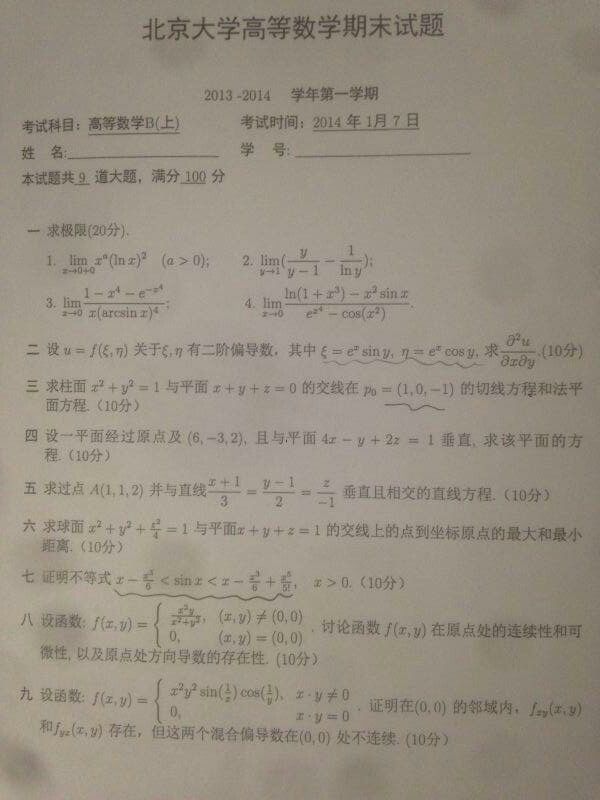 北京大学高等数学期末试题
2013 -2014 学年第一学期
考试科目：高等数学B(上) 考试时间：2014 年 1月 7 日
姓 名: 学 号:
本试题共 9 道大题，满分 100 分
一 求极限(20分).
1. lim_{x→0+0} x^a(ln x)^2 (a > 0); 2. lim_{y→1}(y/(y−1) − 1/ln y);
3. lim_{x→0} (1 − x^4 − e^{−x^4})/(x(arcsin x)^4); 4. lim_{x→0} (ln(1 + x^3) − x^2 sin x)/(e^{x^4} − cos(x^2)).
二 设 u = f(ξ, η) 关于ξ, η 有二阶偏导数，其中 ξ = e^x sin y, η = e^x cos y, 求 ∂^2u/∂x∂y.(10分)
三 求柱面 x^2 + y^2 = 1 与平面 x + y + z = 0 的交线在 p_0 = (1, 0, −1) 的切线方程和法平
面方程.（10分）
四 设一平面经过原点及 (6, −3, 2), 且与平面 4x − y + 2z = 1 垂直, 求该平面的方
程.（10分）
五 求过点 A(1, 1, 2) 并与直线 (x+1)/3 = (y−1)/2 = z/−1 垂直且相交的直线方程.（10分）
六 求球面 x^2 + y^2 + z^2/4 = 1 与平面x + y + z = 1 的交线上的点到坐标原点的最大和最小
距离.（10分）
七 证明不等式 x − x^3/6 < sin x < x − x^3/6 + x^5/5!, x > 0.（10分）
八 设函数: f(x, y) = { x^2y/(x^2+y^2), (x, y) ≠ (0, 0)
0, (x, y) = (0, 0) . 讨论函数 f(x, y) 在原点处的连续性和可
微性, 以及原点处方向导数的存在性. (10分）
九 设函数: f(x, y) = { x^2y^2 sin(1/x) cos(1/y), x · y ≠ 0
0, x · y = 0 . 证明在(0, 0) 的邻域内，f_{xy}(x, y)
和f_{yx}(x, y) 存在，但这两个混合偏导数在(0, 0) 处不连续. (10分）